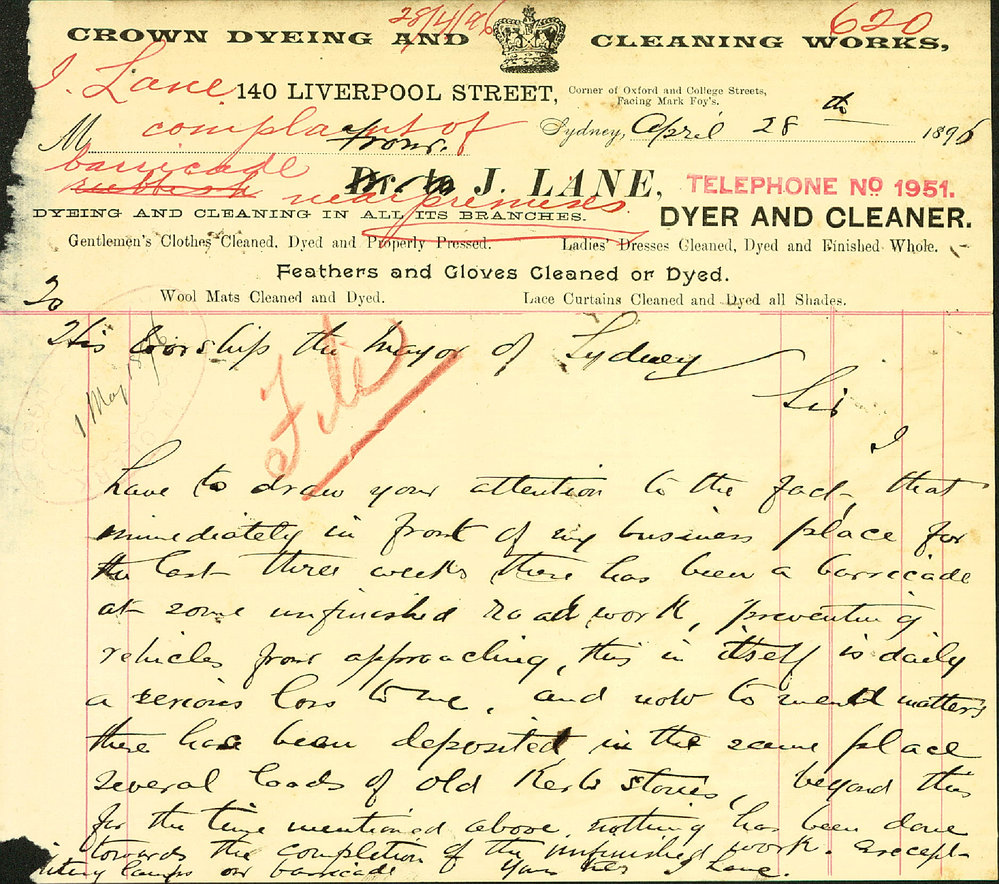 28/4/96
620
CROWN DYEING AND CLEANING WORKS,
J. Lane
140 LIVERPOOL STREET, Corner of Oxford and College Streets,
Facing Mark Foy's.
complaint of
M
Sydney, April 28th 1896
barricade
rubbish near premises
Dr. to J. LANE, TELEPHONE No 1951.
DYEING AND CLEANING IN ALL ITS BRANCHES. DYER AND CLEANER.
Gentlemen's Clothes Cleaned, Dyed and Properly Pressed. Ladies' Dresses Cleaned, Dyed and Finished Whole.
Feathers and Gloves Cleaned or Dyed.
Wool Mats Cleaned and Dyed. Lace Curtains Cleaned and Dyed all Shades.
To
His Worship the Mayor of Sydney
File
1 May 1896
Sir
I
have to draw your attention to the fact, that
immediately in front of my business place for
the last three weeks there has been a barricade
at some unfinished road work, preventing
vehicles from approaching, this in itself is daily
a serious loss to me, and now to mend matters
there has been deposited in the same place
several loads of old Kerb stones, beyond this
for the time mentioned above, nothing has been done
towards the completion of the unfinished work. except
lamps on barricade Yours J Lane.